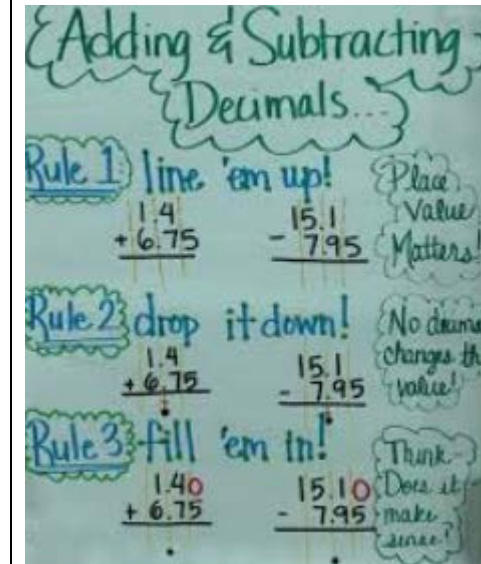 Adding & Subtracting
Decimals...
Rule 1 line 'em up!
1.4
+ 6.75
15.1
- 7.95
Place
Value
Matters!
Rule 2 drop it down!
1.4
+ 6.75
.
15.1
- 7.95
.
No
changes
value!
Rule 3 fill 'em in!
1.40
+ 6.75
.
15.10
- 7.95
.
Think-
Does it
make
sense?